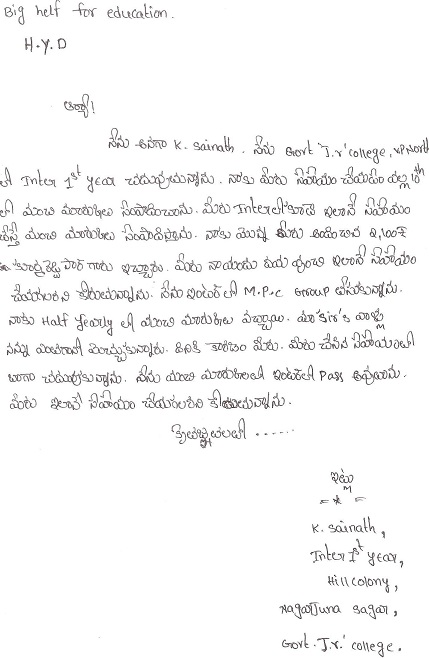 Big help for education.
H.Y.D
ఆర్యా!
నేను అనగా K. Sainath. నేను Govt J.r' college, VP North
లో Inter 1st year చదువుతున్నాను. నాకు మీరు సహాయం చేయడం వల్ల 10th
లో మంచి మార్కులు సంపాదించాను. మీరు Interలో కూడా ఇలానే సహాయం
చేస్తే మంచి మార్కులు సంపాదిస్తాను. నాకు మొన్న మీరు అందించిన 2,100₹
గారు ఇచ్చారు. మీరు నాయందు దయ వుంచి ఇలానే సహాయం
చేయగలరని కోరుచున్నాను. నేను ఇంటర్ లో M.P.C Group తీసుకున్నాను.
నాకు Half Yearly లో మంచి మార్కులు వచ్చాయి. మా sir's వాళ్లు
నన్ను మెచ్చుకున్నారు. దీనికి కారణం మీరు. మీరు చేసిన సహాయంతో
బాగా చదువుకున్నాను. నేను మంచి మార్కులతో ఇంటర్ లో Pass అవుతాను.
మీరు ఇలానే సహాయం చేయగలరని కోరుచున్నాను.
కృతజ్ఞతలతో ......
ఇట్లు
= * =
K. Sainath,
Inter 1st year,
Hill colony,
Nagarjuna sagar,
Govt. J.r.' college.